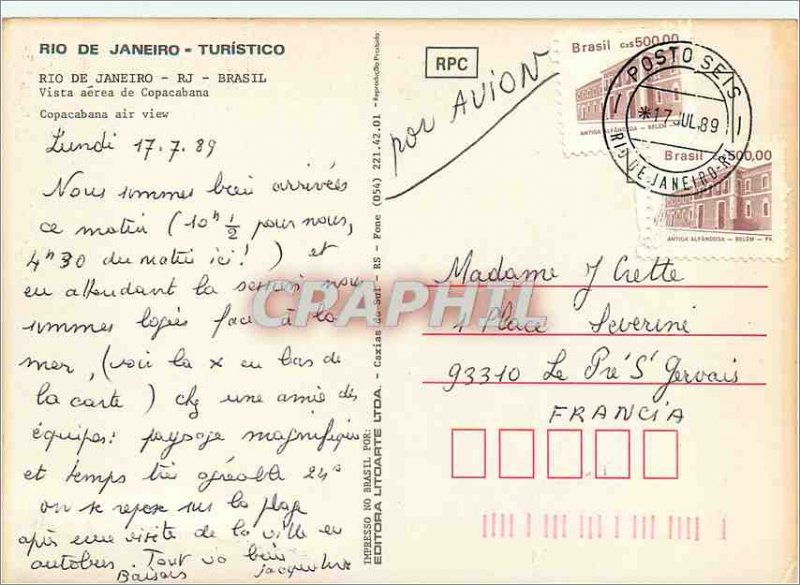 RIO DE JANEIRO - TURÍSTICO
RIO DE JANEIRO - RJ - BRASIL
Vista aérea de Copacabana
Copacabana air view
Lundi 17.7.89
Nous sommes bien arrivées
ce matin (10h 1/2 pour nous,
4h30 du matin ici!) et
en attendant la session nous
sommes logées face à la
mer, (voir la x en bas de
la carte) chez une amie des
équipes: paysage magnifique
et temps très agréable 24°
on se repose sur la plage
après une visite de la ville en
autobus. Tout va bien
Baisers
IMPRESSO NO BRASIL POR:
EDITORA LITOARTE LTDA. - Caxias do Sul - RS - Fone (054) 221.42.01 - Reprodução Proibida
RPC
por AVION
Brasil Cz$500,00
ANTIGA ALFÂNDEGA - BELÉM
POSTO SEIS
*17 JUL 89
RIO DE JANEIRO-RJ
Brasil Cz$500,00
ANTIGA ALFÂNDEGA - BELÉM - PA
Madame J Crette
4 Place Severine
93310 Le Pré St Gervais
FRANCIA
CRAPHIL